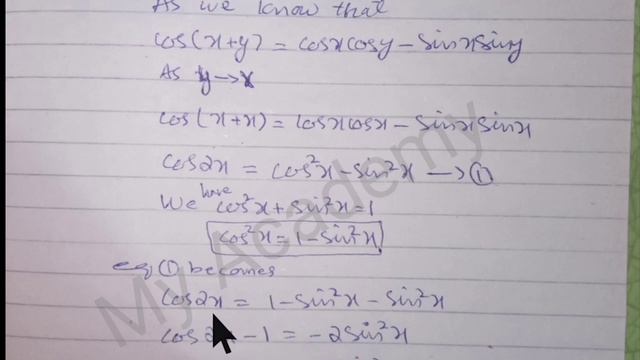 As we know that
cos(x+y) = cosxcosy - sinxsiny
As y→x
cos(x+x) = cosxcosx - sinxsinx
cos2x = cos²x - sin²x → ①
We have cos²x + sin²x = 1
cos²x = 1 - sin²x
eq ① becomes
cos2x = 1 - sin²x - sin²x
cos2x - 1 = -2sin²x
My Academy